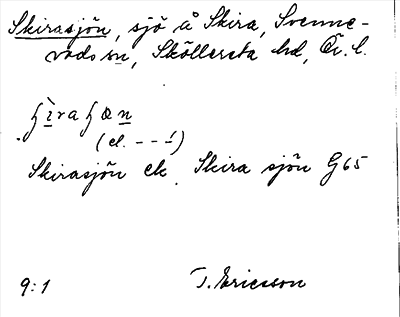 Skirasjön, sjö å Skira, Svenne-
vads sn, Sköllersta hd, Ör. l.
(el. - - -́)
Skirasjön ek. Skira sjön G65
9:1
T. Ericsson